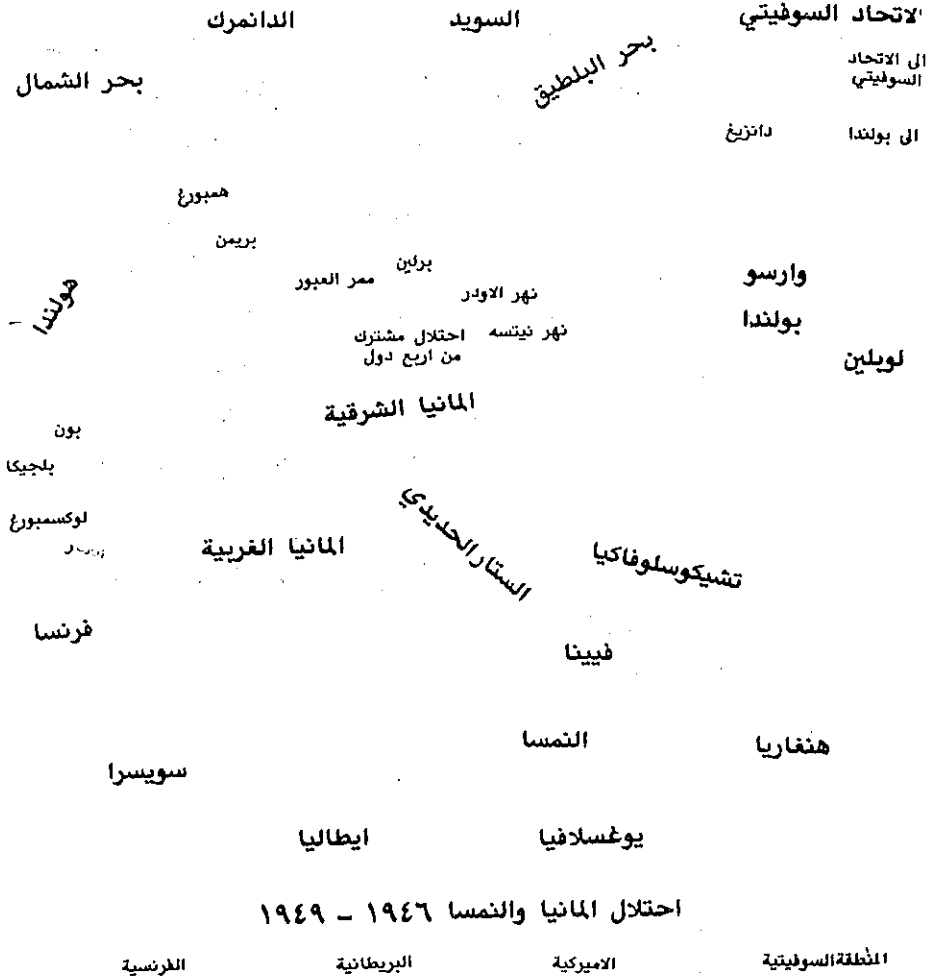 الاتحاد السوفيتي
السويد
الدانمرك
الى الاتحاد
السوفيتي
بحر البلطيق
بحر الشمال
الى بولندا
دانزيغ
همبورغ
بريمن
برلين
ممر العبور
نهر الاودر
وارسو
هولندا
بولندا
نهر نيتسه
احتلال مشترك
من اربع دول
لوبلين
المانيا الشرقية
بون
بلجيكا
لوكسمبورغ
المانيا الغربية
الستار الحديدي
تشيكوسلوفاكيا
فرنسا
فيينا
النمسا
هنغاريا
سويسرا
يوغسلافيا
ايطاليا
احتلال المانيا والنمسا ١٩٤٦ – ١٩٤٩
المنطقة السوفيتية
الاميركية
البريطانية
الفرنسية